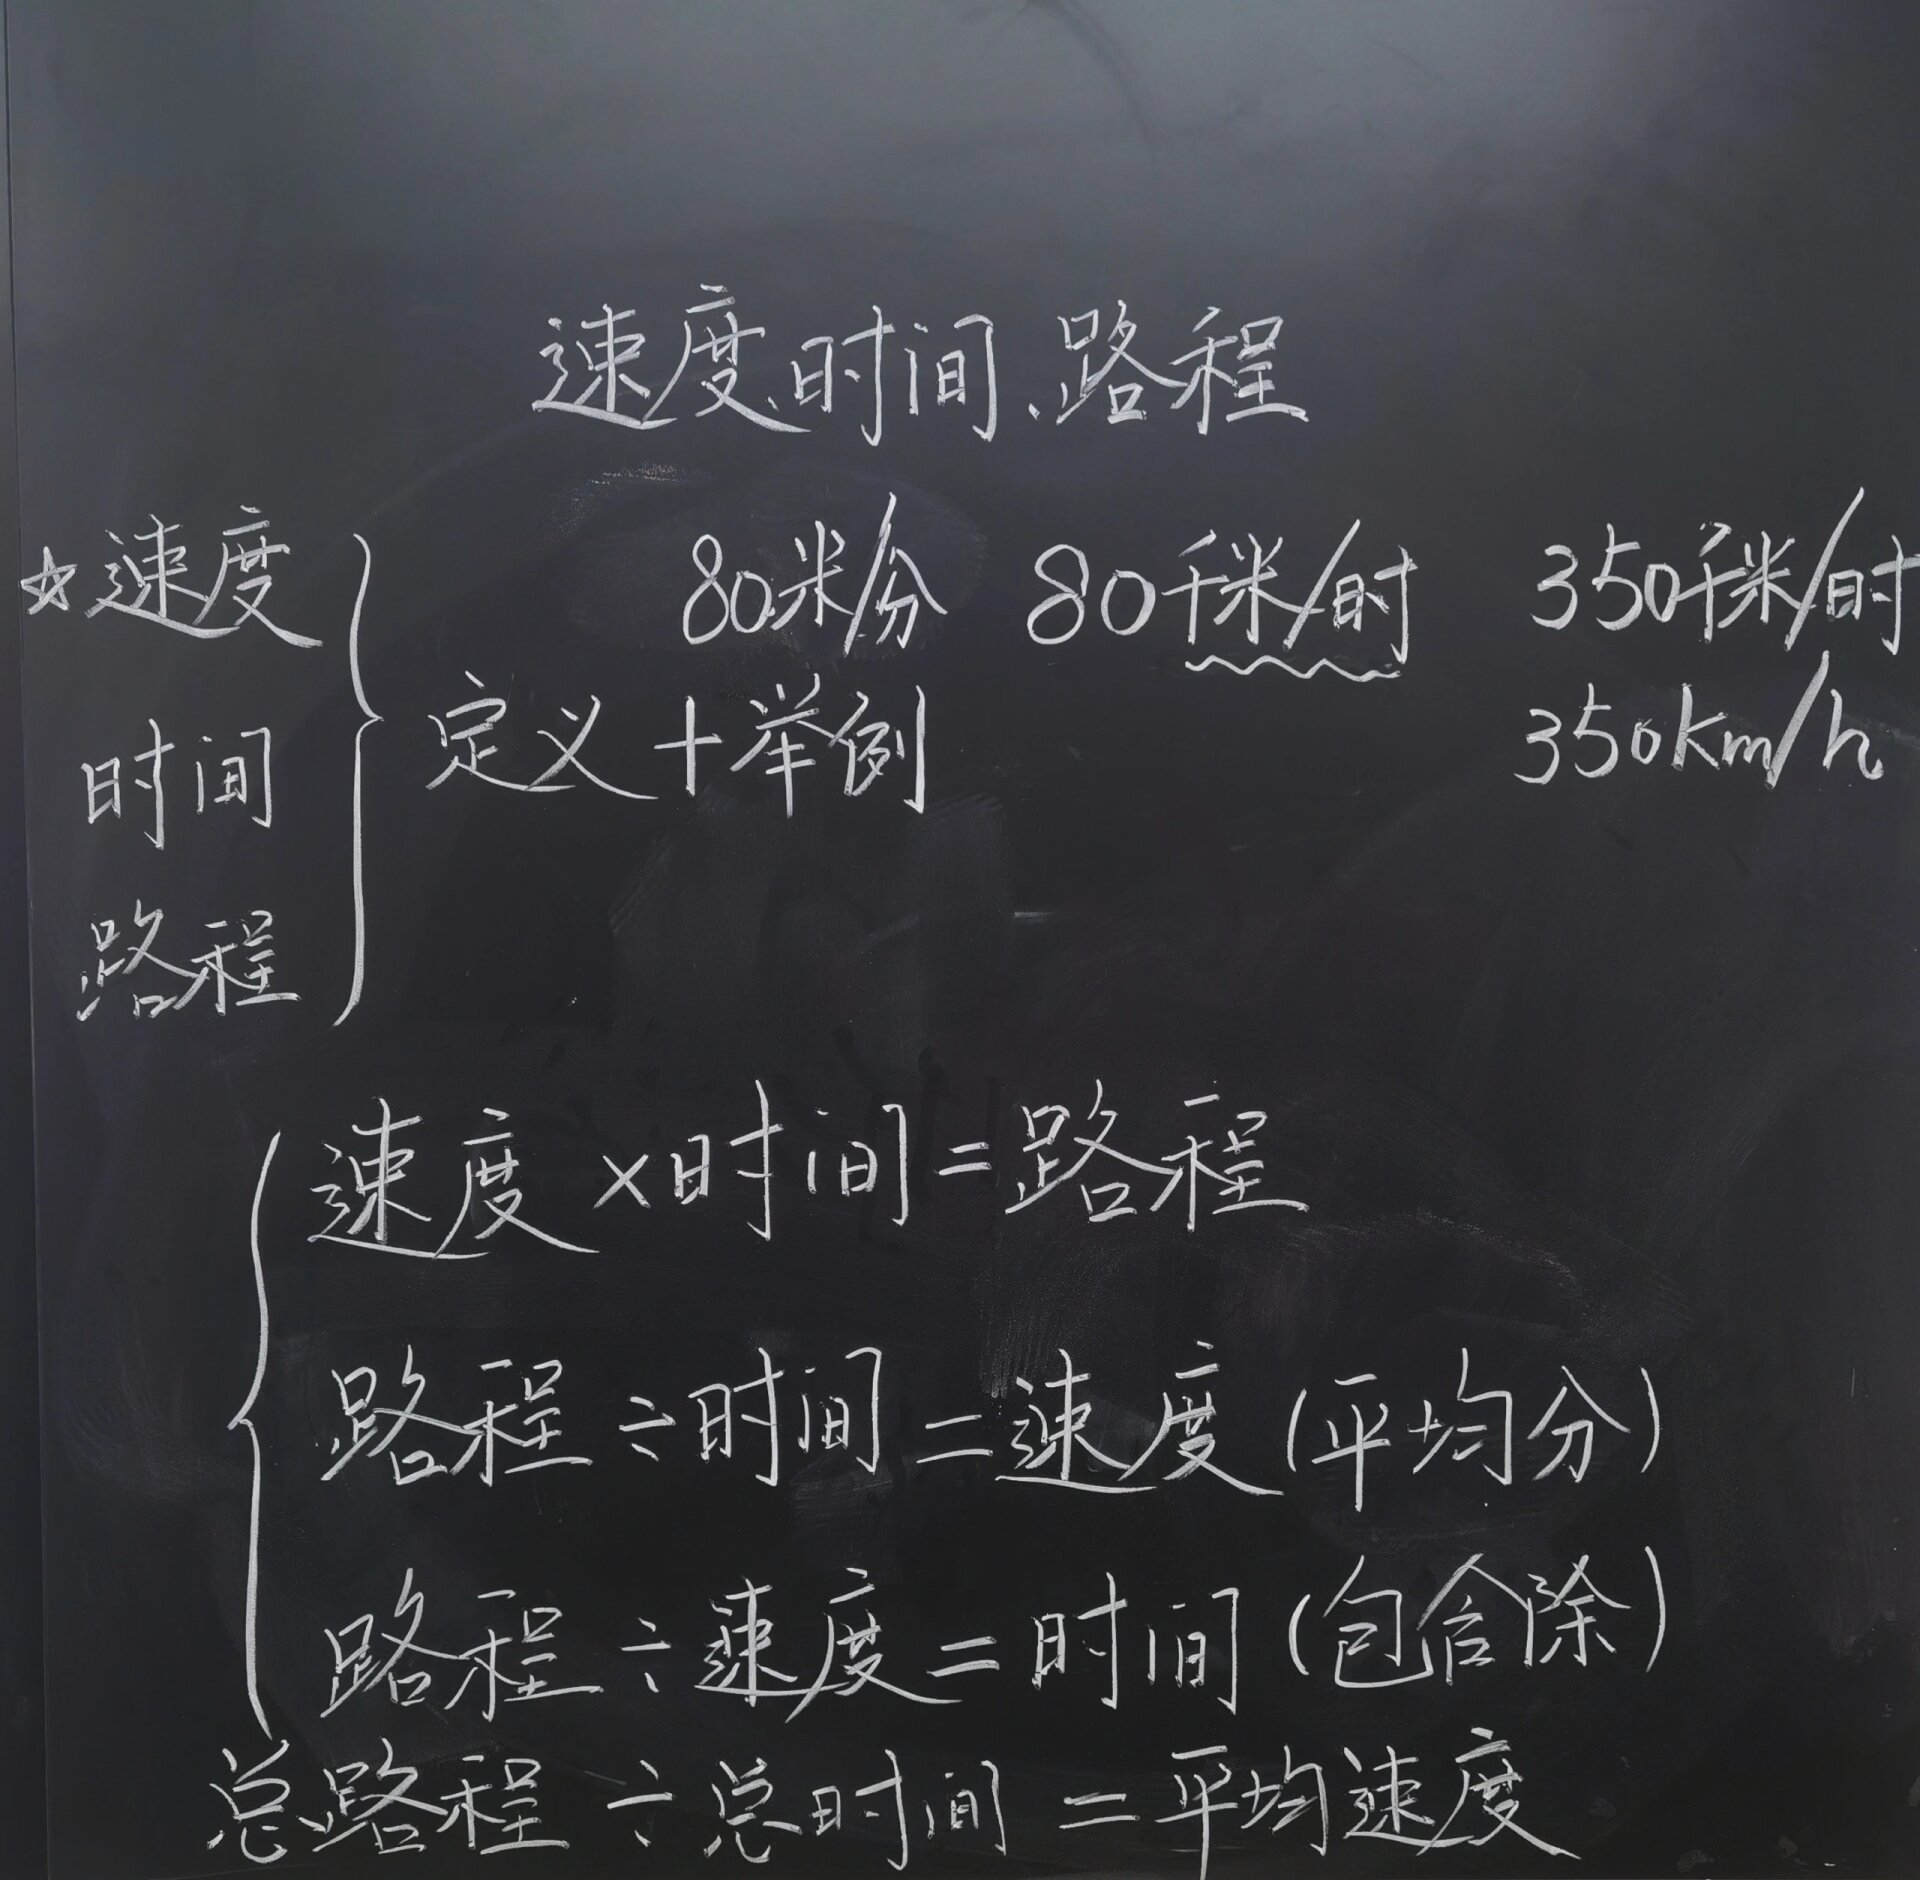 速度、时间、路程
☆速度 80米/分 80千米/时 350千米/时
时间 定义+举例 350km/h
路程
速度×时间=路程
路程÷时间=速度(平均分)
路程÷速度=时间(包含除)
总路程÷总时间=平均速度